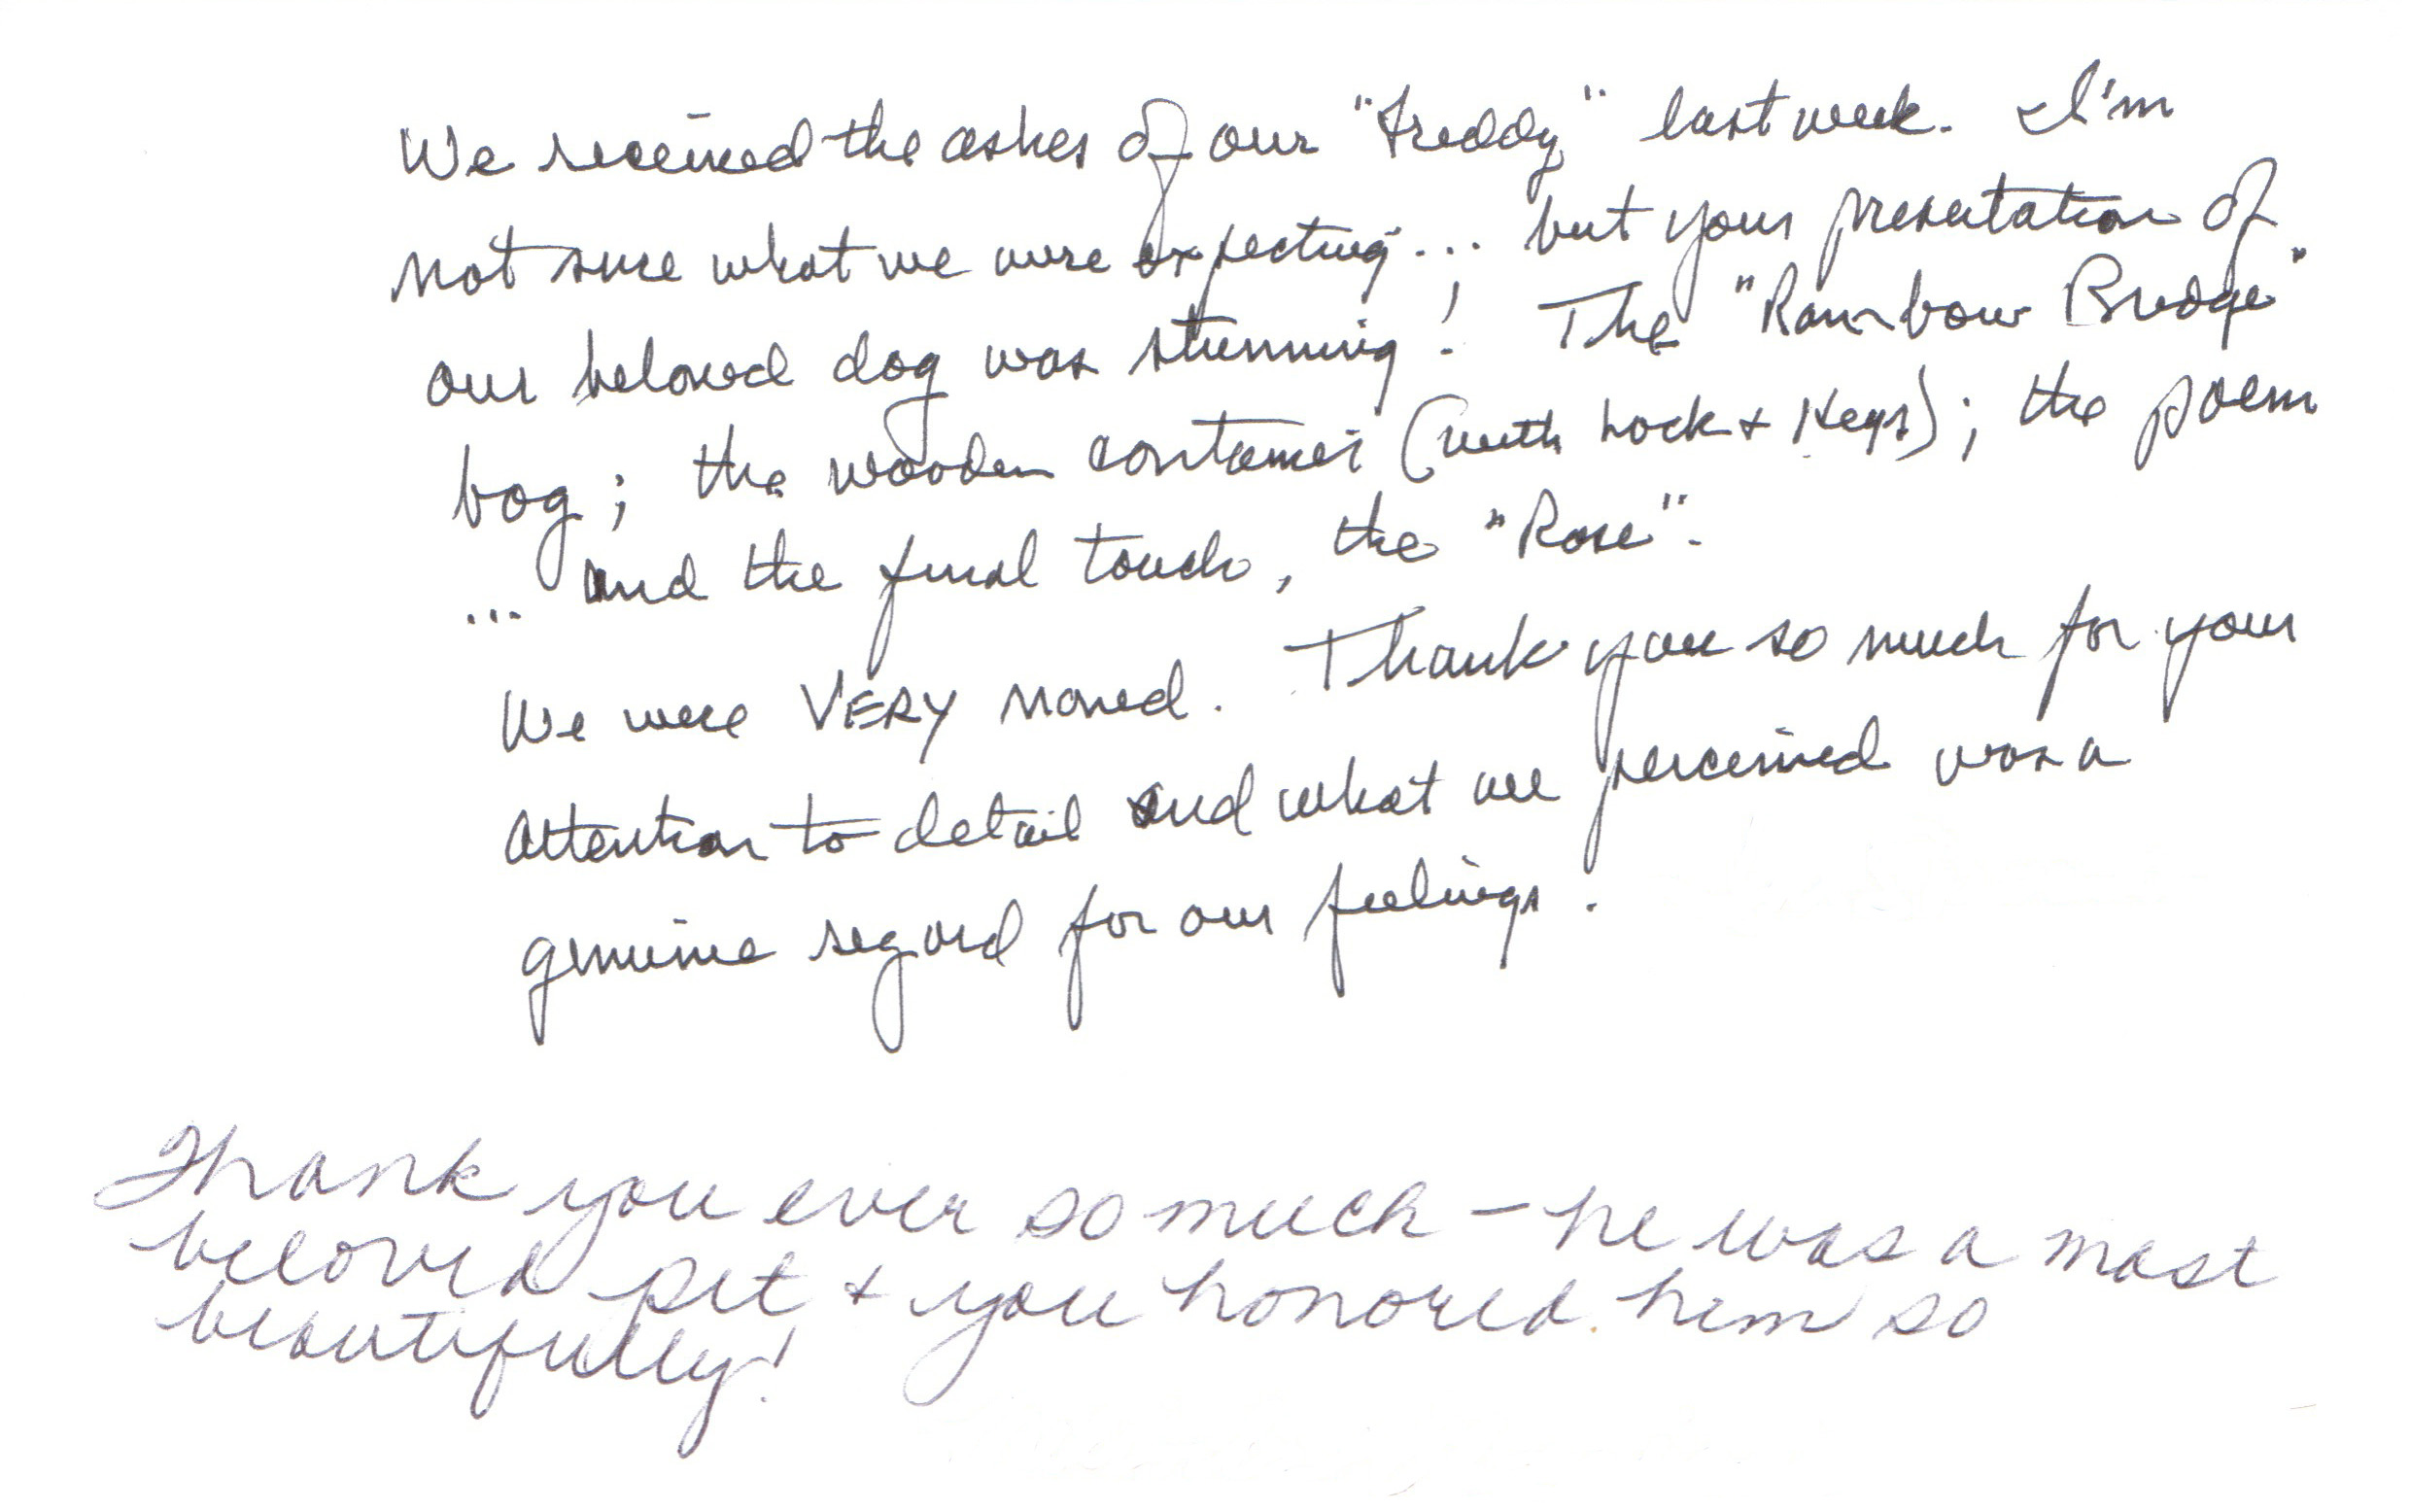 We received the ashes of our "Freddy" last week. I'm
not sure what we were expecting... but your presentation of
our beloved dog was stunning! The "Rainbow Bridge"
bag; the wooden container (with Lock + Keys); the poem
... and the final touch, the "Rose".
We were VERY moved. Thank you so much for your
attention to detail and what we perceived was a
genuine regard for our feelings.
Thank you ever so much - he was a most
beloved pet + you honored him so
beautifully!